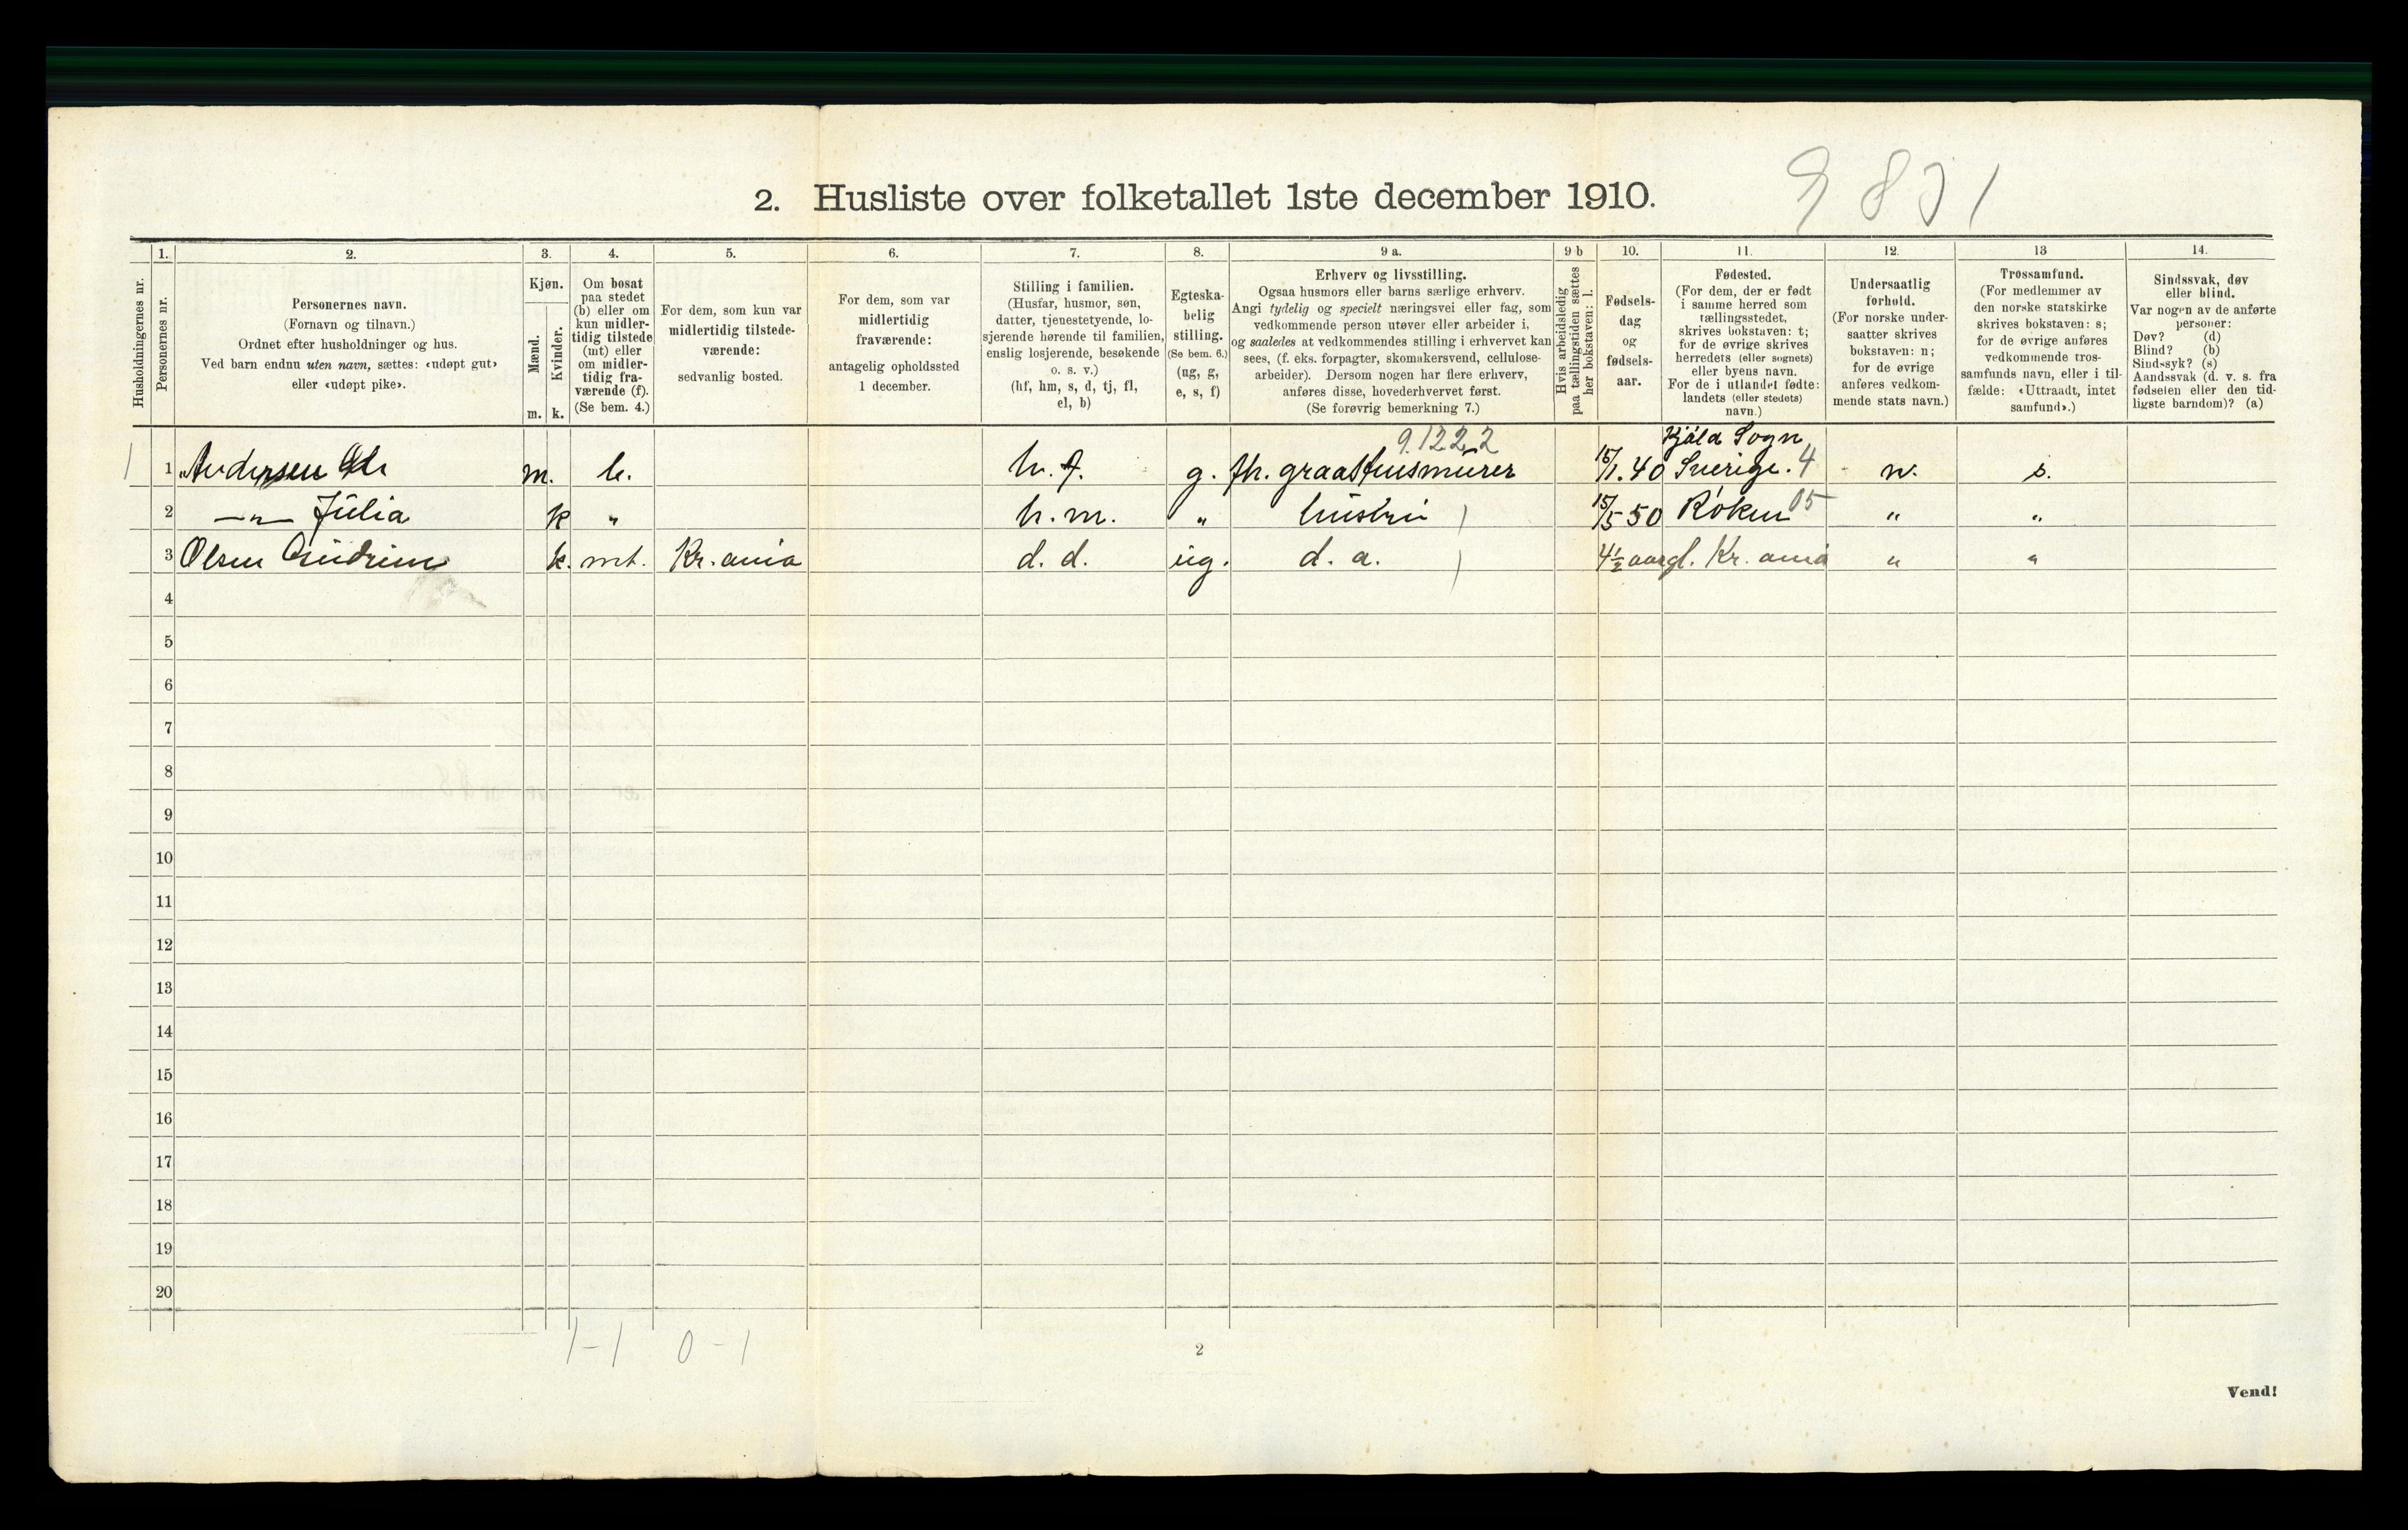 9 8 3 1
2. Husliste over folketallet 1ste december 1910.
Husholdningernes nr.
1.
Personernes nr.
2.
Personernes navn.
(Fornavn og tilnavn.)
Ordnet efter husholdninger og hus.
Ved barn endnu uten navn, sættes: «udøpt gut»
eller «udøpt pike».
3.
Kjøn.
Mænd.
Kvinder.
m. k.
4.
Om bosat
paa stedet
(b) eller om
kun midler-
tidig tilstede
(mt) eller
om midler-
tidig fra-
værende (f).
(Se bem. 4.)
5.
For dem, som kun var
midlertidig tilstede-
værende:
sedvanlig bosted.
6.
For dem, som var
midlertidig
fraværende:
antagelig opholdssted
1 december.
7.
Stilling i familien.
(Husfar, husmor, søn,
datter, tjenestetyende, lo-
sjerende hørende til familien,
enslig losjerende, besøkende
o. s. v.)
(hf, hm, s, d, tj, fl,
el, b)
8.
Egteska-
belig
stilling.
(Se bem. 6.)
(ug, g,
e, s, f)
9 a.
Erhverv og livsstilling.
Ogsaa husmors eller barns særlige erhverv.
Angi tydelig og specielt næringsvei eller fag, som
vedkommende person utøver eller arbeider i,
og saaledes at vedkommendes stilling i erhvervet kan
sees, (f. eks. forpagter, skomakersvend, cellulose-
arbeider). Dersom nogen har flere erhverv,
anføres disse, hovederhvervet først.
(Se forøvrig bemerkning 7.)
9 b
Hvis arbeidsledig
paa tællingstiden sættes
her bokstaven: l.
10.
Fødsels-
dag
og
fødsels-
aar.
11.
Fødested.
(For dem, der er født
i samme herred som
tællingsstedet,
skrives bokstaven: t;
for de øvrige skrives
herredets (eller sognets)
eller byens navn.
For de i utlandet fødte:
landets (eller stedets)
navn.)
12.
Undersaatlig
forhold.
(For norske under-
saatter skrives
bokstaven: n;
for de øvrige
anføres vedkom-
mende stats navn.)
13
Trossamfund.
(For medlemmer av
den norske statskirke
skrives bokstaven: s;
for de øvrige anføres
vedkommende tros-
samfunds navn, eller i til-
fælde: «Uttraadt, intet
samfund».)
14.
Sindssvak, døv
eller blind.
Var nogen av de anførte
personer:
Døv? (d)
Blind? (b)
Sindssyk? (s)
Aandssvak (d. v. s. fra
fødselen eller den tid-
ligste barndom)? (a)
9.122.2 Kjóla Sogn
1 1 Andersen Ole m. b. h. f. g. fh. graastensmürer 15/1.40 Sverige. 4 n. s.
2 —"— Júlia k " h. m. " hústrú ) 15/5 50 Róken 05 " "
3 Olsen Gúdrún k. mt. Kr. ania d. d. úg. d. a. ) 4½ aar gl. Kr. ania " "
4
5
6
7
8
9
10
11
12
13
14
15
16
17
18
19
20
1-1 0-1
2
Vend!